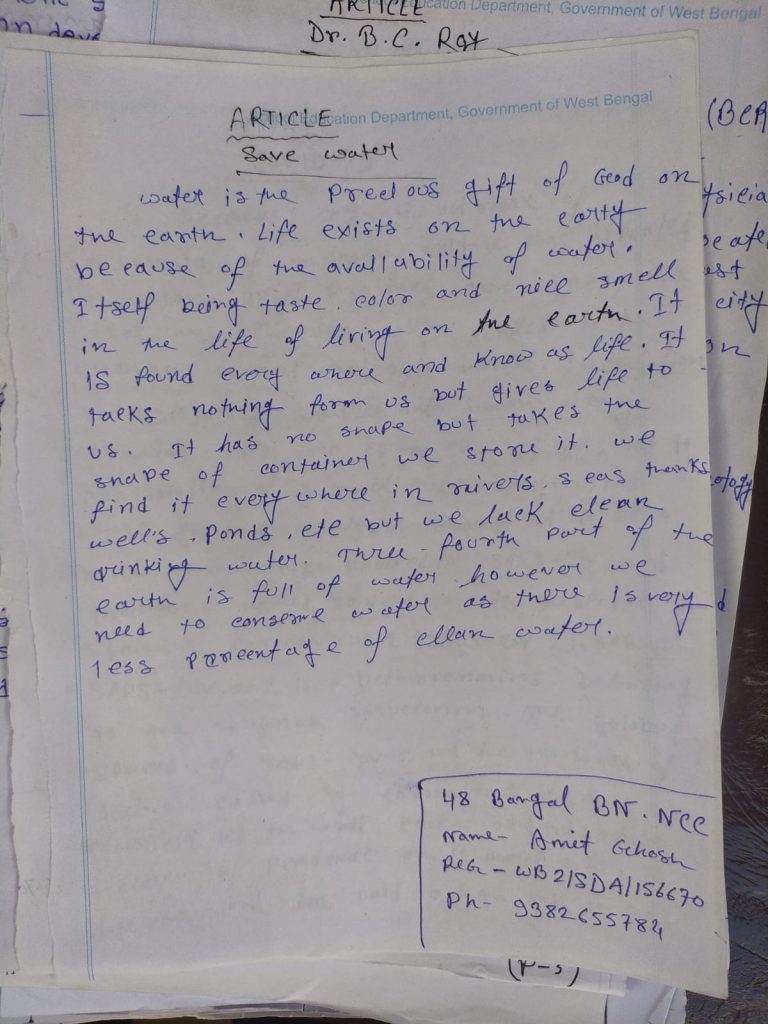 ARTICLE
Education Department, Government of West Bengal
Dr. B.C. Roy
ARTICLE
Education Department, Government of West Bengal
Save water
water is the Precious gift of God on
the earth. Life exists on the earty
because of the availability of water.
Itself being taste. color and nice smell
in the life of living on the earth. It
is found every where and know as life. It
tacks nothing form us but gives life to
us. It has no shape but takes the
shape of container we store it. we
find it every where in rivers. seas thanks
well's. Ponds, etc but we lack clean
drinking water. Three-fourth part of the
earth is full of water however we
need to conserve water as there is very
less parcentage of clean water.
48 Bangal BN. NCC
Name- Amit Ghosh
REG - WB21SDA1156670
Ph- 9382655784
(P-5)
city